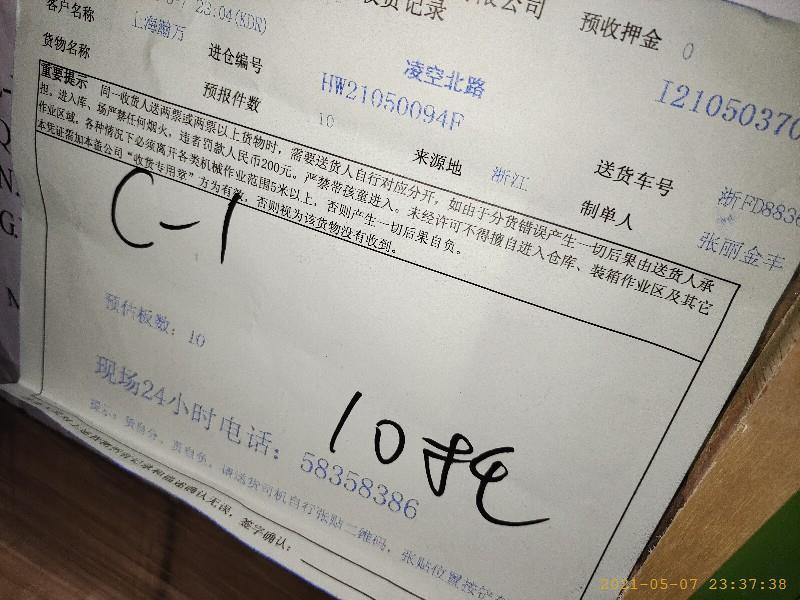 有限公司
收货记录
预收押金 0
23:04(KDR)
客户名称 上海瀚万
凌空北路
I21050370
货物名称
进仓编号 HW21050094F
预报件数 10
来源地 浙江
送货车号 浙FD8836
制单人 张丽金丰
重要提示 同一收货人送两票或两票以上货物时，需要送货人自行对应分开，如由于分货错误产生一切后果由送货人承
担。进入库、场严禁任何烟火，违者罚款人民币200元。严禁带孩童进入。未经许可不得擅自进入仓库、装箱作业区及其它
作业区域。各种情况下必须离开各类机械作业范围5米以上，否则产生一切后果自负。
本凭证需加本盖公司“收货专用章”方为有效，否则视为该货物没有收到。
C-1
预估板数：10
10托
现场24小时电话：58358386
提示：货自分，责自负，请送货司机自行张贴二维码，张贴位置按铲车
记录和描述确认无误，签字确认：
2021-05-07 23:37:38